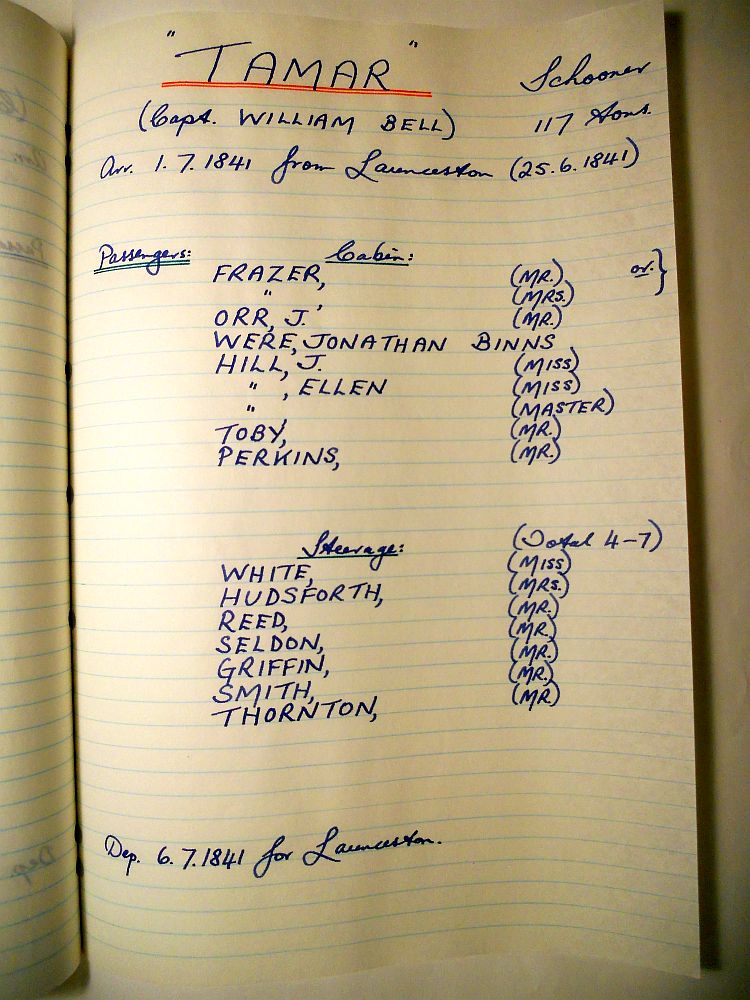 "TAMAR" Schooner
(Capt. WILLIAM BELL) 117 Tons.
Arr. 1.7.1841 from Launceston (25.6.1841)
Passengers: Cabin:
FRAZER, (MR.) or. }
" , (MRS.)
ORR, J. (MR.)
WERE, JONATHAN BINNS
HILL, J. (MISS)
" , ELLEN (MISS)
" (MASTER)
TOBY, (MR.)
PERKINS, (MR.)
Steerage: (Total 4-7)
WHITE, (MISS)
HUDSFORTH, (MRS.)
REED, (MR.)
SELDON, (MR.)
GRIFFIN, (MR.)
SMITH, (MR.)
THORNTON, (MR)
Dep. 6.7.1841 for Launceston.